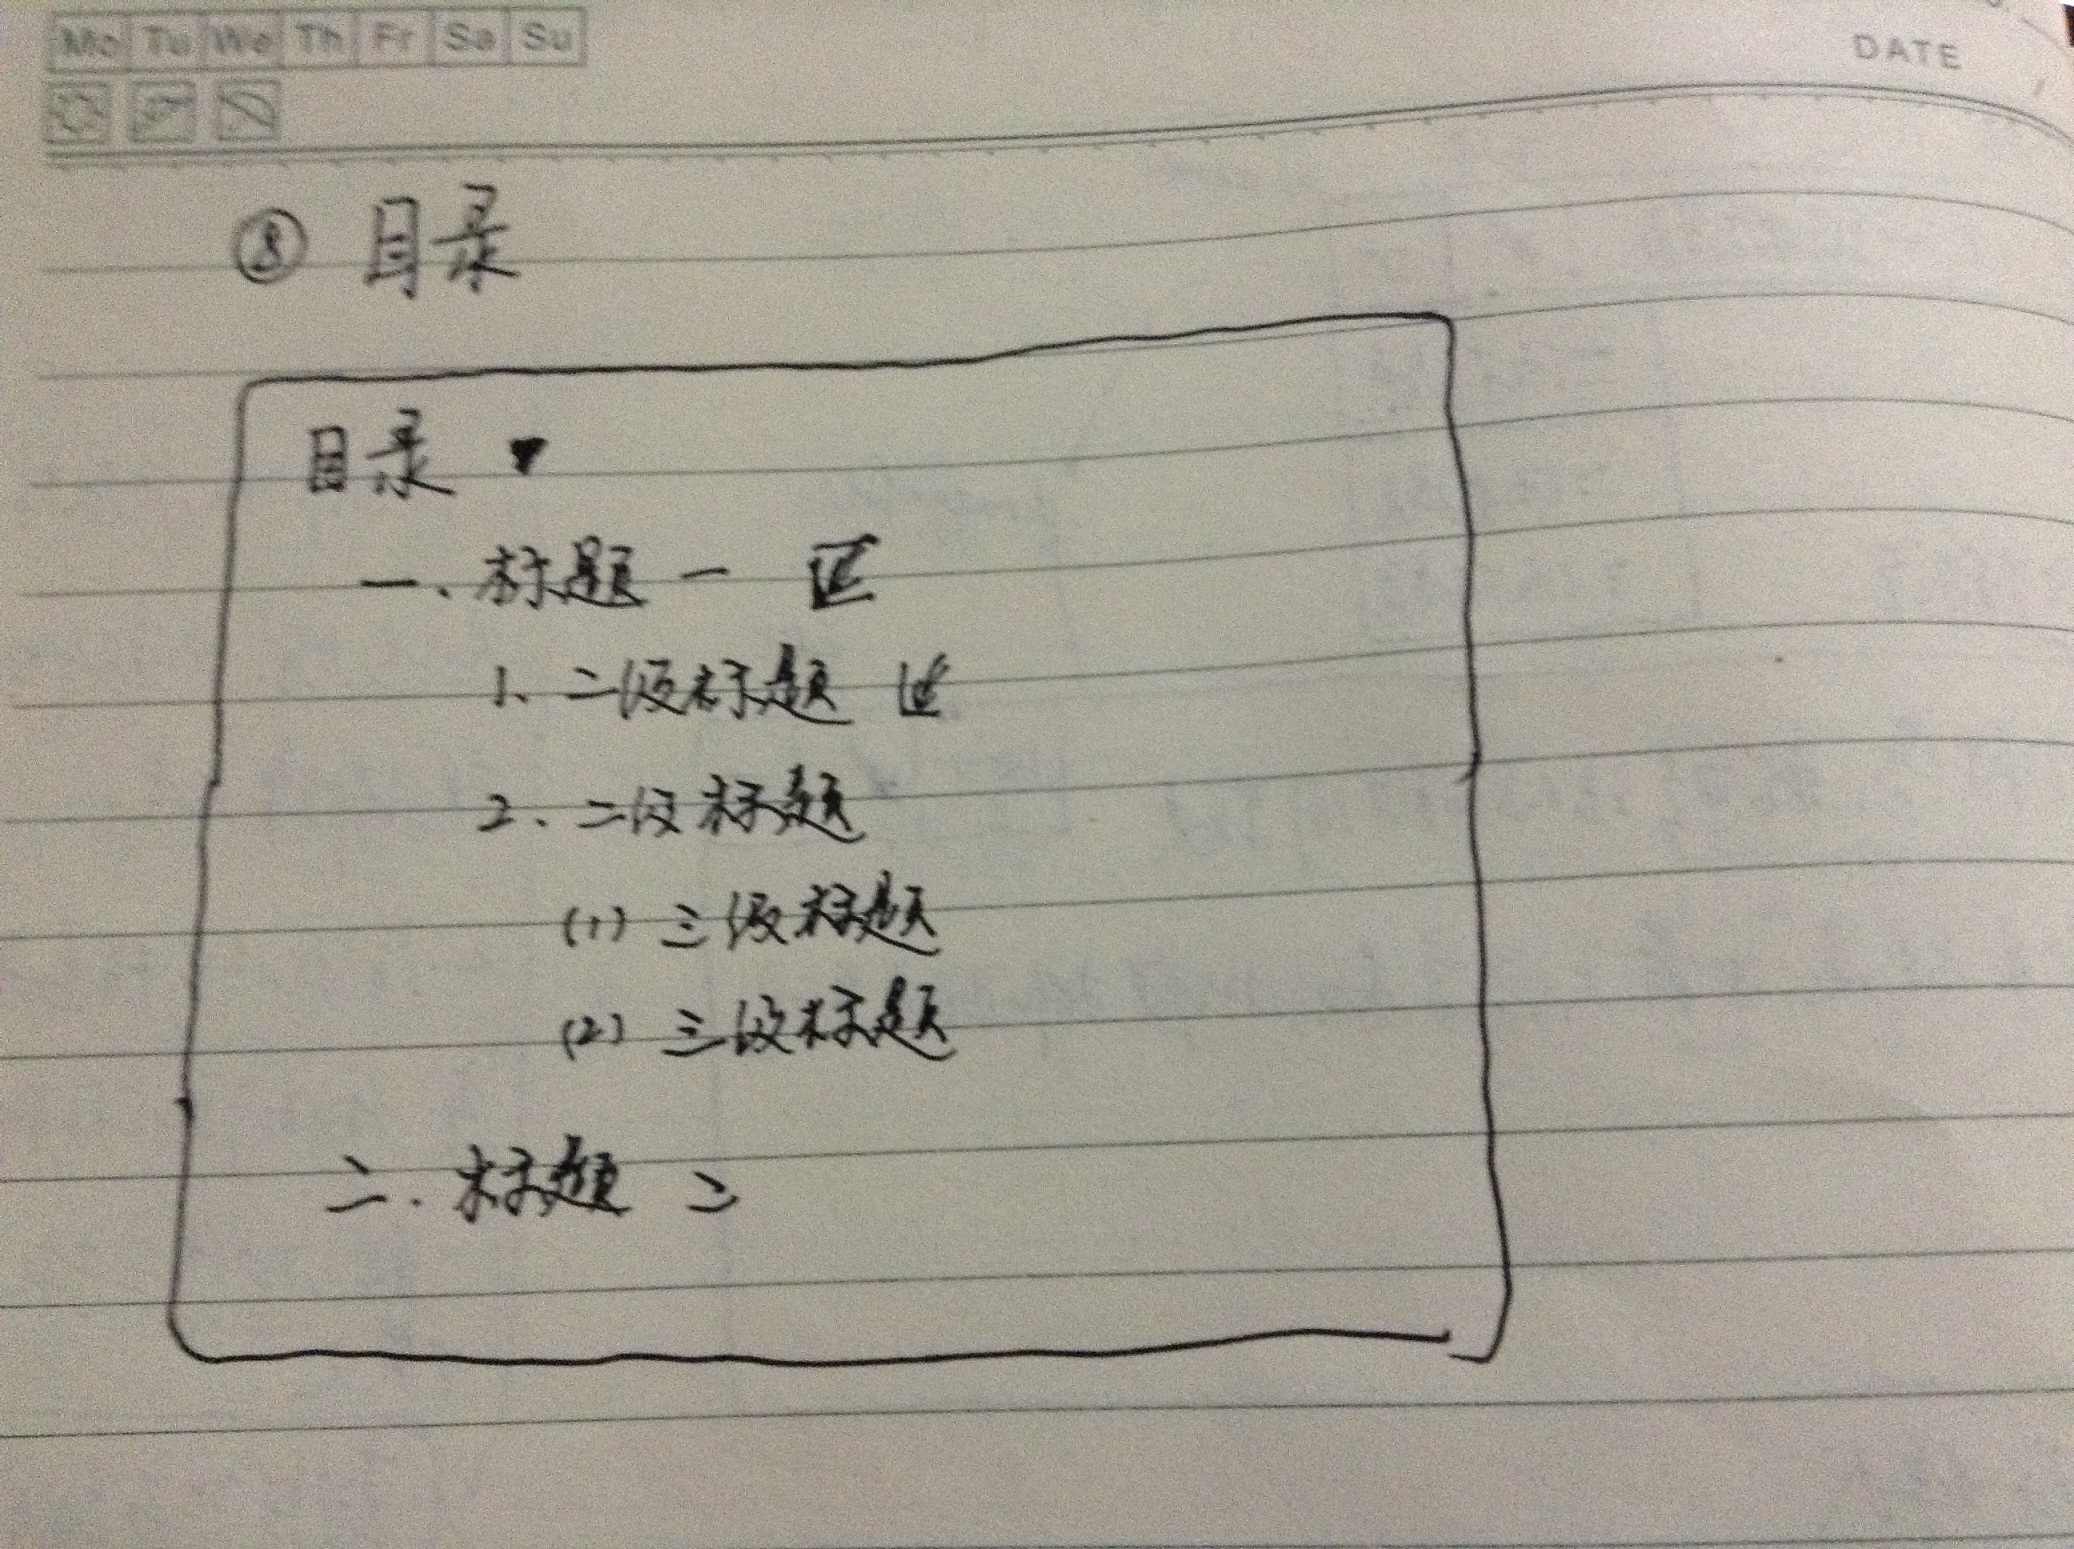 Mo Tu We Th Fr Sa Su
DATE
⑧ 目录
目录 ▾
一、标题一
1、二级标题
2、二级标题
(1) 三级标题
(2) 三级标题
二、标题二